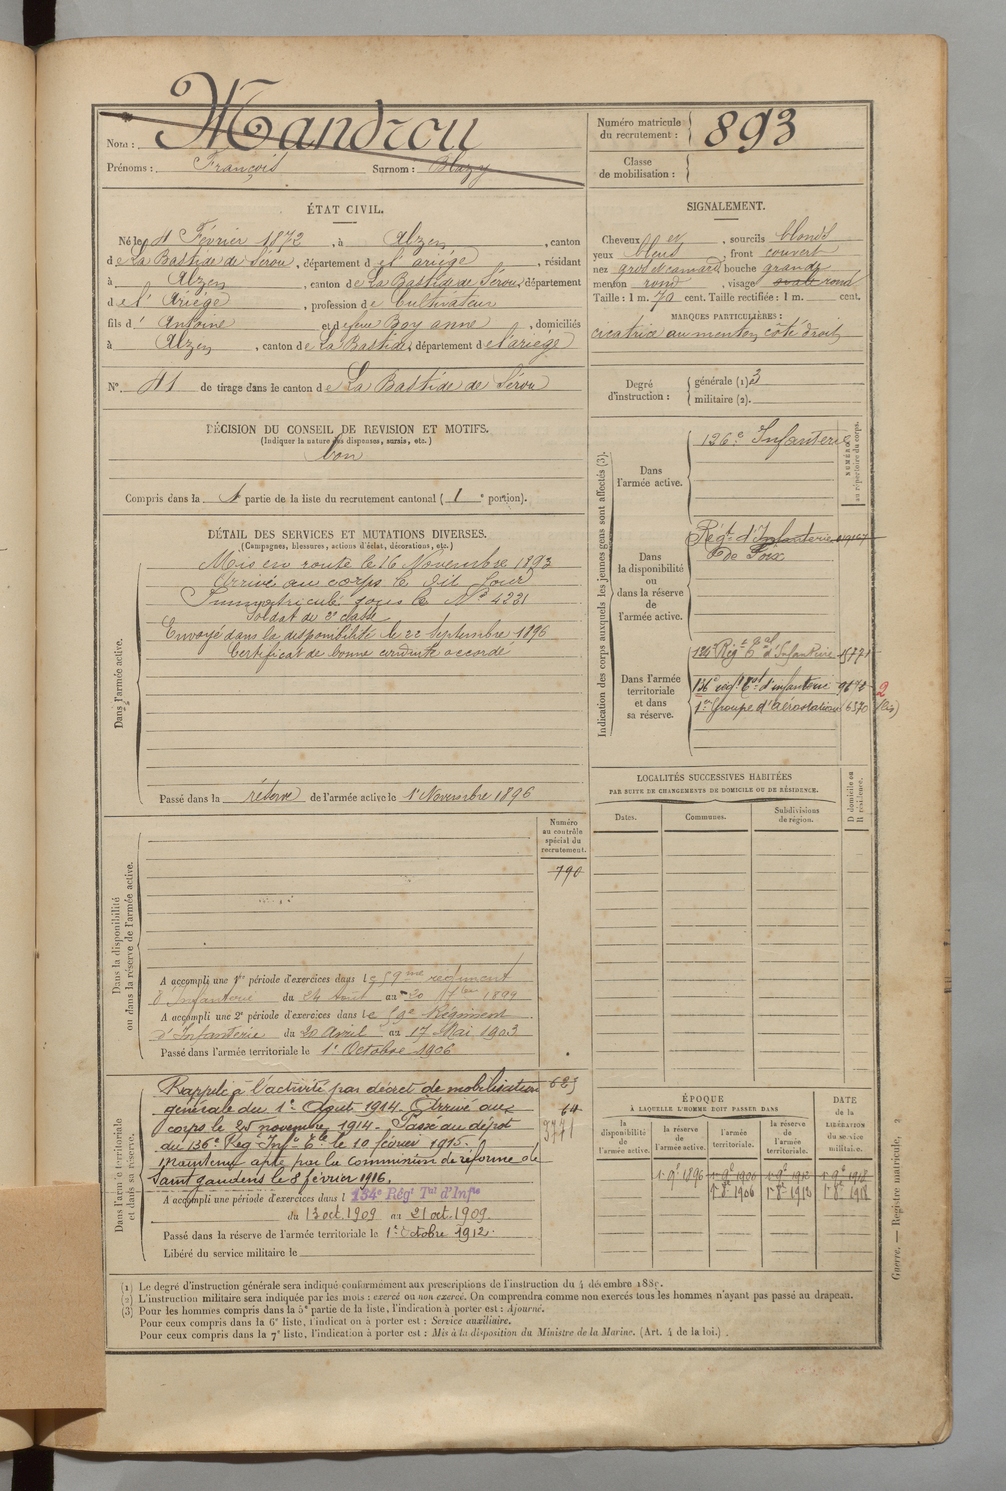 Nom : Mandrou
Prénoms : François Surnom : Blazy
Numéro matricule du recrutement : 893
Classe de mobilisation :
ÉTAT CIVIL.
Né le 4 Février 1872, à Alzen, canton
de La Bastide de Sérou, département de l'ariège, résidant
à Alzen, canton de La Bastide de Sérou, département
de l'Ariège, profession de Cultivateur
fils d' Antoine et de feue Boy anne, domiciliés
à Alzen, canton de La Bastide, département de l'ariège
N° 41 de tirage dans le canton de La Bastide de Sérou
SIGNALEMENT.
Cheveux et, sourcils blonds
yeux bleus, front couvert
nez gros et camard, bouche grande
menton rond, visage ovale rond
Taille : 1 m. 70 cent. Taille rectifiée : 1 m. cent.
MARQUES PARTICULIÈRES :
cicatrice au menton côté droit
Degré d'instruction :
générale (1) 3
militaire (2).
DÉCISION DU CONSEIL DE REVISION ET MOTIFS.
(Indiquer la nature des dispenses, sursis, etc.)
bon
Compris dans la 1 partie de la liste du recrutement cantonal (1e portion).
DÉTAIL DES SERVICES ET MUTATIONS DIVERSES.
(Campagnes, blessures, actions d'éclat, décorations, etc.)
Dans l'armée active.
Mis en route le 16 Novembre 1893
Arrivé au corps le dit jour
Immatriculé sous le N° 4231
Soldat de 2e classe
Envoyé dans la disponibilité le 22 Septembre 1896
Certificat de bonne conduite accordé
Passé dans la réserve de l'armée active le 1r Novembre 1896
Indication des corps auxquels les jeunes gens sont affectés (3).
NUMÉRO au répertoire du corps.
Dans l'armée active.
126e Infanterie
Dans la disponibilité ou dans la réserve de l'armée active.
Régt d'Infanterie
de Foix
Dans l'armée territoriale et dans sa réserve.
134e Régt d'Infanterie
136e régt d'infanterie
1er Groupe d'Aérostation 6370
LOCALITÉS SUCCESSIVES HABITÉES
PAR SUITE DE CHANGEMENTS DE DOMICILE OU DE RÉSIDENCE.
Dates. Communes. Subdivisions de région. D domicile ou R résidence.
Dans la disponibilité ou dans la réserve de l'armée active.
Numéro au contrôle spécial du recrutement.
790
A accompli une 1re période d'exercices dans le 59me régiment
d'Infanterie du 24 Août au 20 7bre 1899
A accompli une 2e période d'exercices dans le 59e Régiment
d'Infanterie du 20 Avril au 17 Mai 1903
Passé dans l'armée territoriale le 1r Octobre 1906
Dans l'armée territoriale et dans sa réserve.
Rappelé à l'activité par décret de mobilisation
générale du 1er Août 1914. Arrivé au
corps le 25 novembre 1914. Passé au dépôt
du 136e Régt Infie Tle le 10 février 1915.
Maintenu apte par la commission de réforme de
Saint gaudens le 8 février 1916.
A accompli une période d'exercices dans l 134e Régt Tal d'Infie
du 13 oct. 1909 au 21 oct. 1909.
Passé dans la réserve de l'armée territoriale le 1r Octobre 1912.
Libéré du service militaire le
ÉPOQUE
À LAQUELLE L'HOMME DOIT PASSER DANS
la disponibilité de l'armée active. la réserve de l'armée active. l'armée territoriale. la réserve de l'armée territoriale.
DATE de la LIBÉRATION du service militaire.
1r 9bre 1896 1r 9bre 1906 1r 9bre 1912 1r 9bre 1918
1r 8bre 1906 1r 8bre 1912 1r 8bre 1918
(1) Le degré d'instruction générale sera indiqué conformément aux prescriptions de l'instruction du 4 décembre 1889.
(2) L'instruction militaire sera indiquée par les mots : exercé ou non exercé. On comprendra comme non exercés tous les hommes n'ayant pas passé au drapeau.
(3) Pour les hommes compris dans la 5e partie de la liste, l'indication à porter est : Ajourné.
Pour ceux compris dans la 6e liste, l'indication à porter est : Service auxiliaire.
Pour ceux compris dans la 7e liste, l'indication à porter est : Mis à la disposition du Ministre de la Marine. (Art. 4 de la loi.).
Guerre. — Registre matricule.